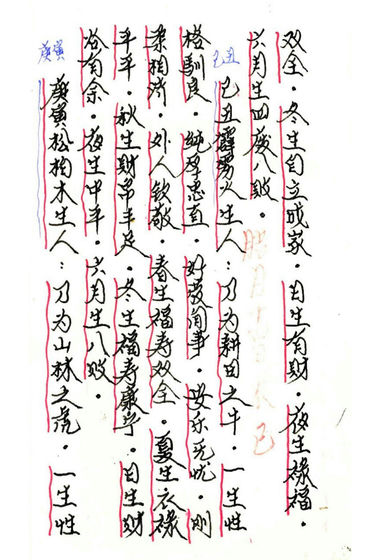 双全。冬生自立成家。日生有财。夜生禄福。
六月生四废八败。
腊月不已
己丑
己丑霹雳火生人：乃为耕田之牛。一生性
格驯良。纯厚忠直。好事。安乐无忧。刚
柔相济。外人钦敬。春生福寿双全。夏生衣禄
平平。秋生财帛丰足。冬生福寿康宁。日生财
谷有余。夜生中平。六月生八败。
庚寅
庚寅松柏木生人：乃为山林之虎。一生性